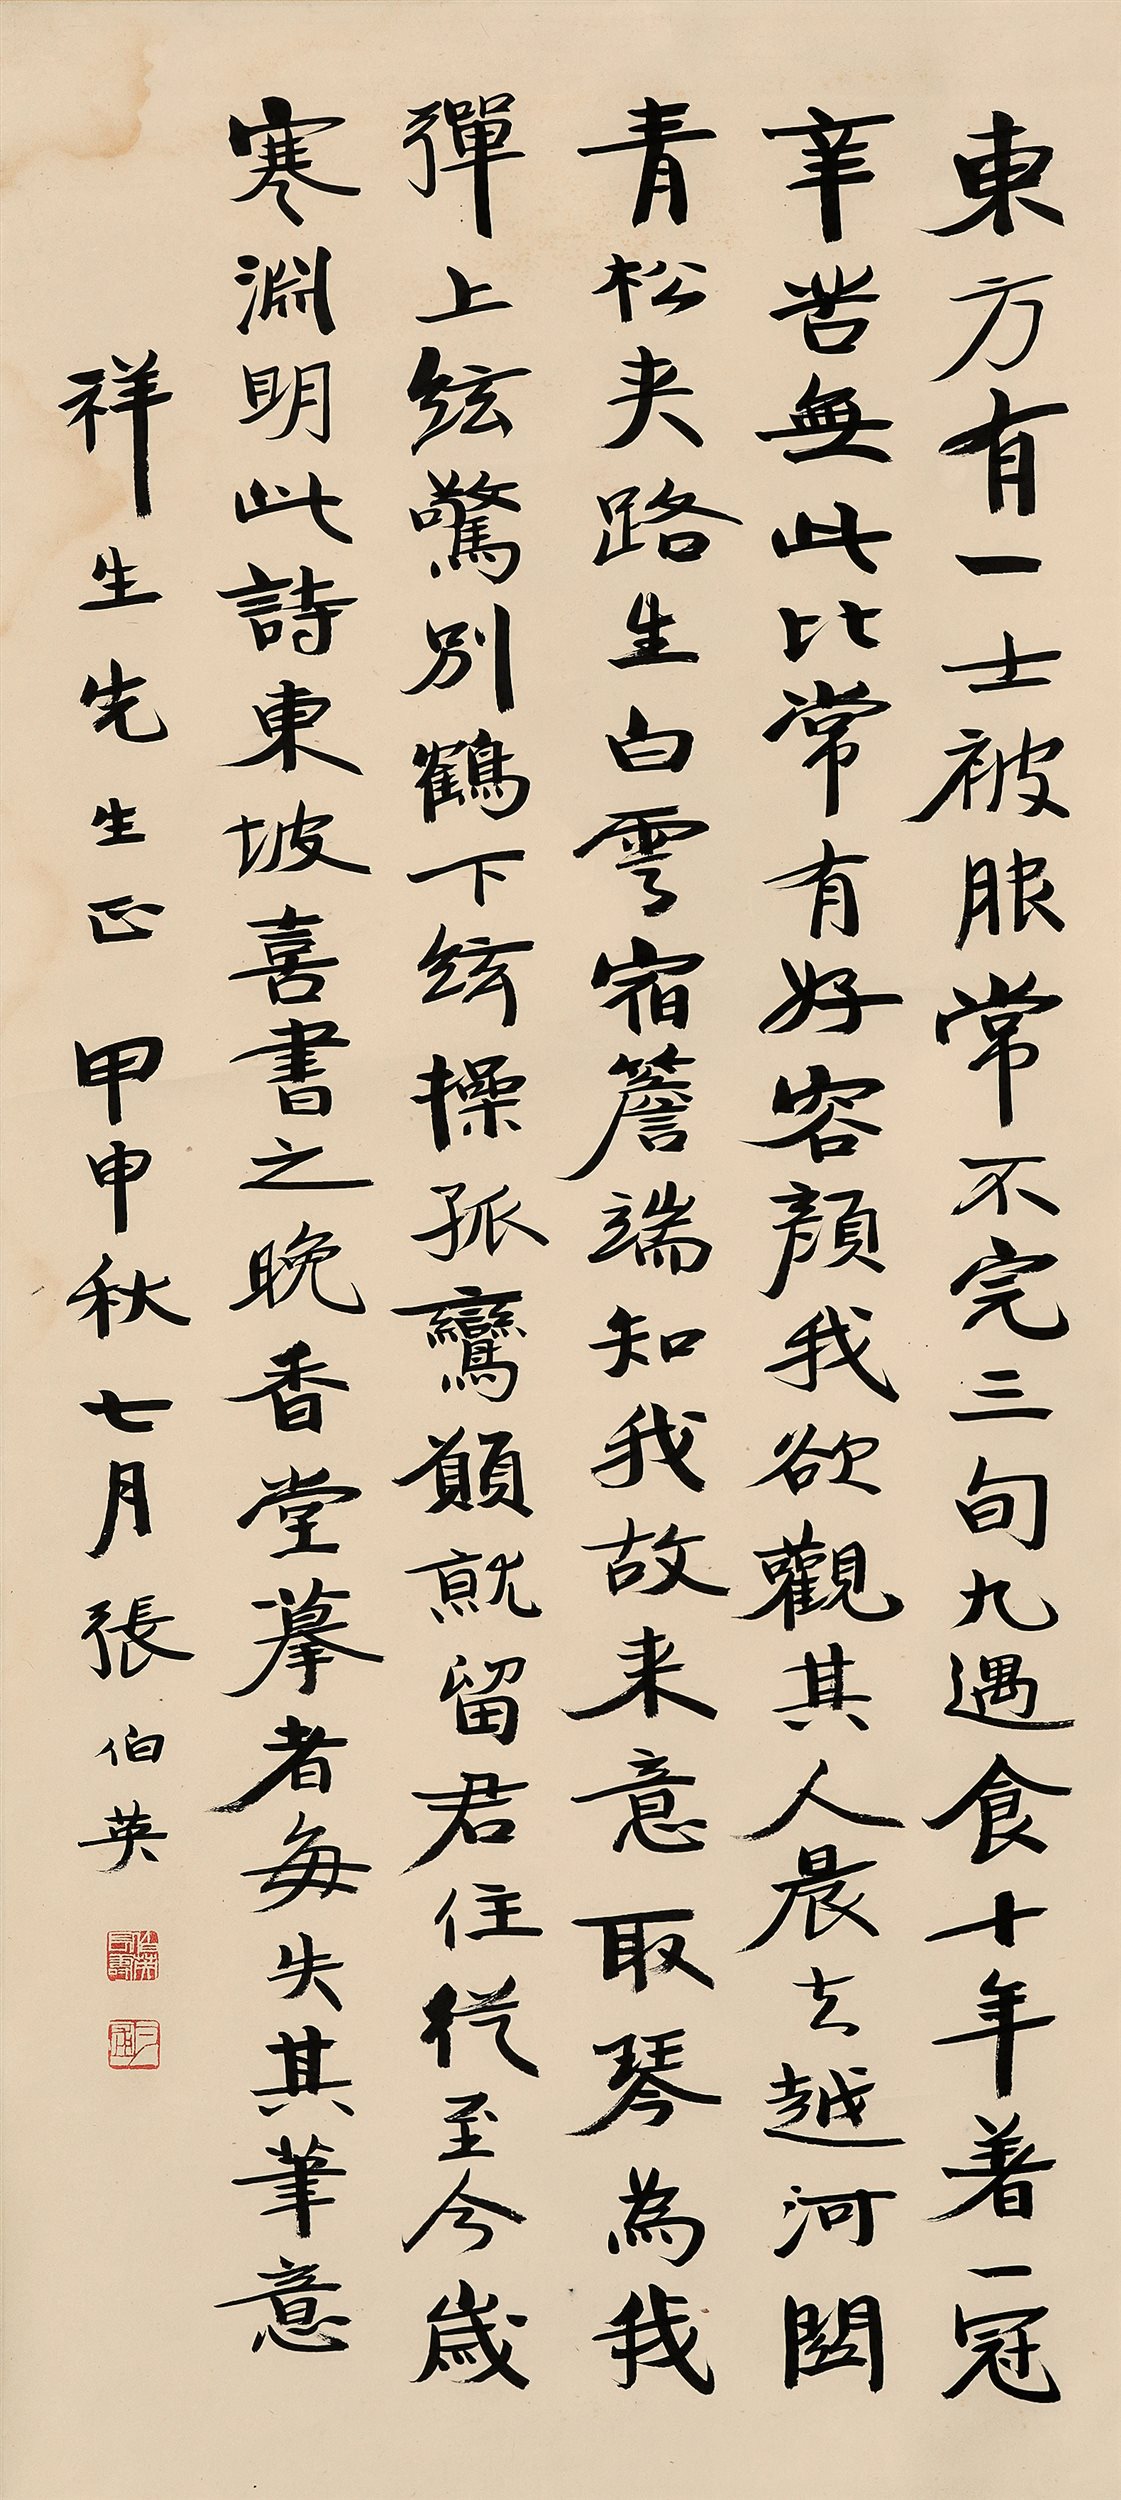 東方有一士被服常不完三旬九遇食十年著一冠
辛苦無此比常有好容顏我欲觀其人晨去越河關
青松夾路生白雲宿簷端知我故来意取琴為我
彈上絃驚別鶴下絃操孤鸞願就留君住從至今歲
寒淵明此詩東坡喜書之晚香堂摹者每失其筆意
祥生先生正 甲申秋七月張伯英